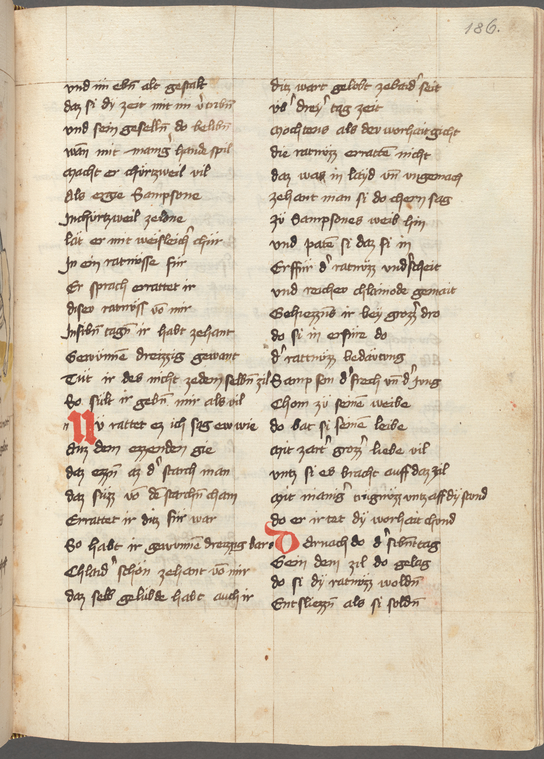 186.
und im ebn alt gestalt
daz si dy zeit mit im vˀtribn̄
und sein geselln̄ do belibn̄
wan̄ mit mang hande spil
macht er churtzweil vil
Als egge Sampsone
In churtzweil ze dne
lat er mit weisleichˀ chür
In ein ratnusse für
Er sprach errattet ir
diser ratnuss vō mir
In sibn̄ tagn̄ ir habt zehant
Gewunne dreizzig gewant
Tüt ir des nicht ze dem selbn̄ zil
So sült ir gebn̄ mir als vil
Nv rattet ez ich sag ew wie
Auz dem ezzenden gie
daz ezzn̄ az dˀ starch man
daz süzz vō dē starchn̄ cham
Errattet ir ditz für war
So habt ir gewunne dreizzig dar
Chlaidˀ schön zehant vō mir
daz selb gelübde habt auch ir
ditz wart gelobt ze baidˀ seit
vbˀ dreyˀ tag zeit
Mochtens als der worhait gicht
die ratnuzz erratten nicht
daz waz in layd vn̄ ungemach
zehant man si do chern sag
Zü Sampsones weib hin
und paten si daz si in
Erfür dˀ ratnuzz undˀscheit
und reicher chlainode gemait
Gehiezzns ir bey grozzˀ dro
do si in erfüre do
dˀ rattnuzz bedäutung
Sampson dˀ frech vn̄ dˀ Jung
Chom zü seinē weibe
do bat si seinē leibe
Mit zartˀ grozzˀ liebe vil
untz si es bracht auff daz zil
Mit manigˀ trignuzz untz aff dy stund
do er ir tet dy worhait chund
Dar nach do dˀ sibn̄t tag
Gein dem zil do gelag
do si dy ratnuzz woldn̄
Entsliezzn̄ als si soldn̄